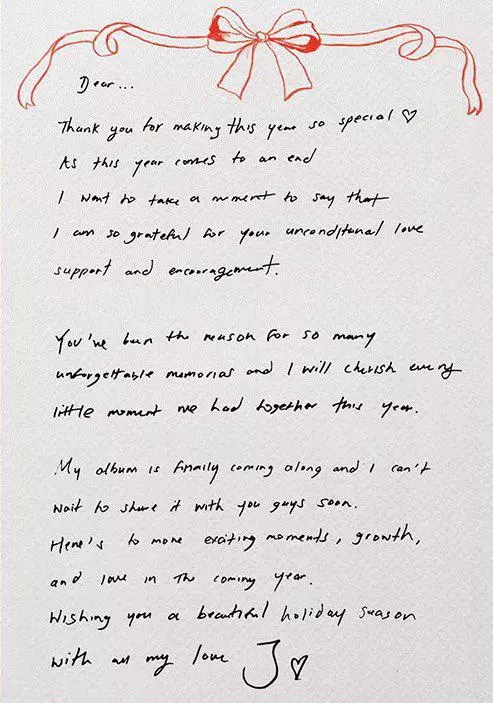 Dear...
Thank you for making this year so special ♡
As this year comes to an end
I want to take a moment to say that
I am so grateful for your unconditional love
support and encouragement.
You've been the reason for so many
unforgettable memories and I will cherish every
little moment we had together this year.
My album is finally coming along and I can't
wait to share it with you guys soon.
Here's to more exciting moments, growth,
and love in the coming year.
Wishing you a beautiful holiday season
with all my love J ♡